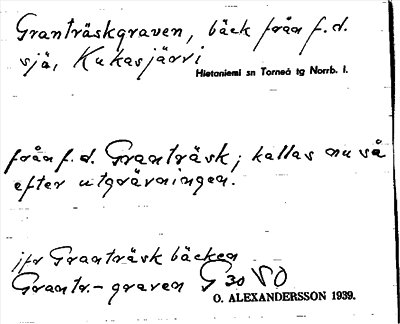 Granträskgraven, bäck från f.d.
sjä, Kukasjärvi
Hietaniemi sn Torneå tg Norrb. l.
från f.d. Granträsk; kallas nu så
efter utgrävningen.
jfr Granträskbäcken
Grantr.-graven G 30 VO
O. ALEXANDERSSON 1939.